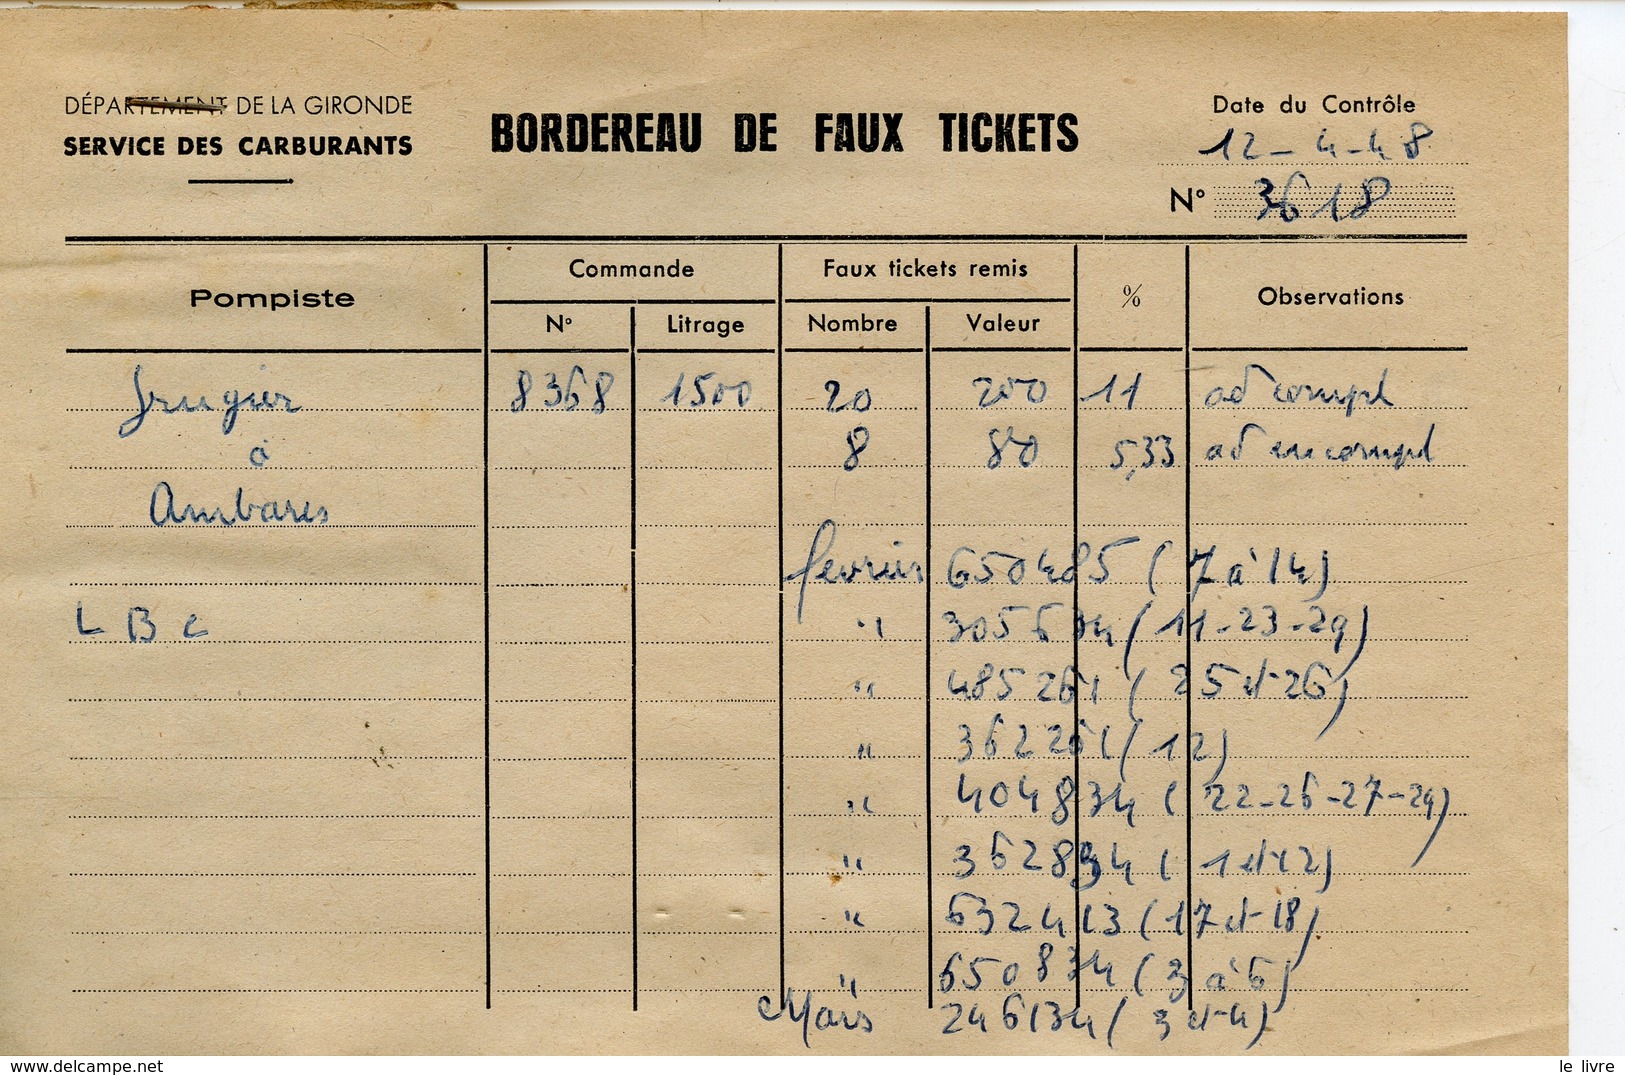 DÉPARTEMENT DE LA GIRONDE
SERVICE DES CARBURANTS
BORDEREAU DE FAUX TICKETS
Date du Contrôle
12-4-48
N° 3618
Pompiste
Commande
Faux tickets remis
%
Observations
N°
Litrage
Nombre
Valeur
8368 1500 20 200 11 ad compl
à 8 80 5,33 ad incompl
Ambares
fevrier 650485 (7 à 14)
L B C " 305634 (11-23-29)
" 485261 (25 et 26)
" 362261 (12)
" 404834 (22-26-27-29)
" 362834 (1 et 2)
" 632413 (17 et 18)
" 650834 (3 à 6)
Mars 246134 (3 et 4)
le livre